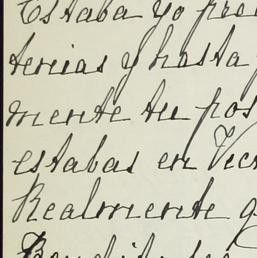 Estaba yo pre
tenias y hasta
mente tu pos
estabas en Vic
Realmente q